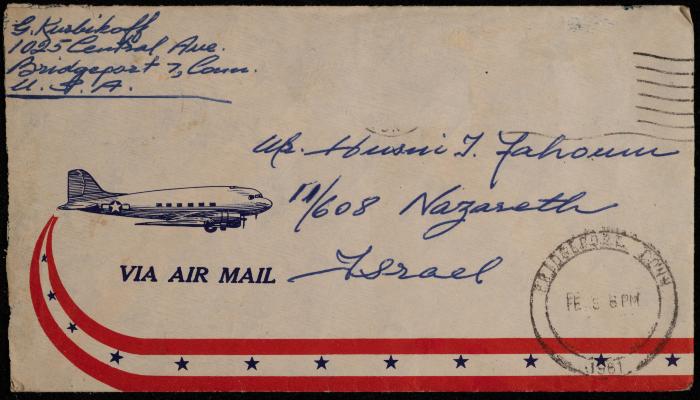 G. Kurbikoff
1025 Central Ave.
Bridgeport 7, Conn.
U. S. A.
Mr. Husni I. Fahoum
111/608 Nazareth
Israel
VIA AIR MAIL
BRIDGEPORT CONN
FE 6 PM
1961